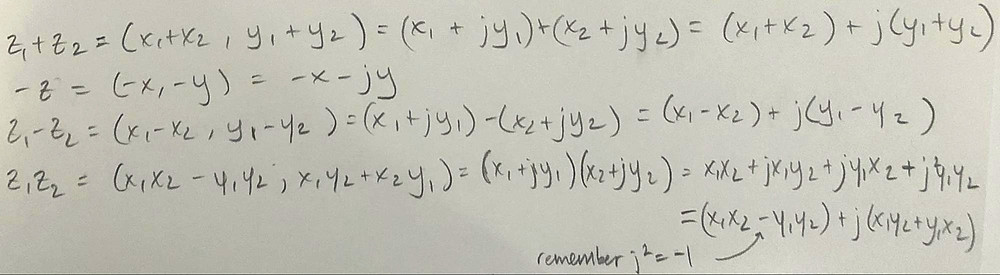 z₁+z₂ = (x₁+x₂ , y₁+y₂) = (x₁ + jy₁)+(x₂+jy₂) = (x₁+x₂) + j(y₁+y₂)
-z = (-x,-y) = -x-jy
z₁-z₂ = (x₁-x₂ , y₁-y₂) = (x₁+jy₁)-(x₂+jy₂) = (x₁-x₂) + j(y₁-y₂)
z₁z₂ = (x₁x₂ - y₁y₂ , x₁y₂+x₂y₁) = (x₁+jy₁)(x₂+jy₂) = x₁x₂+jx₁y₂+jy₁x₂+j²y₁y₂
=(x₁x₂-y₁y₂)+j(x₁y₂+y₁x₂)
remember j²=-1